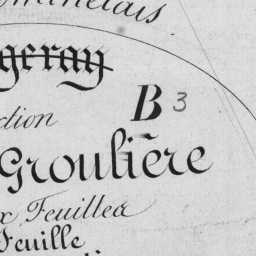 geray
B 3
ction
Groulière
x Feuilles
Feuille